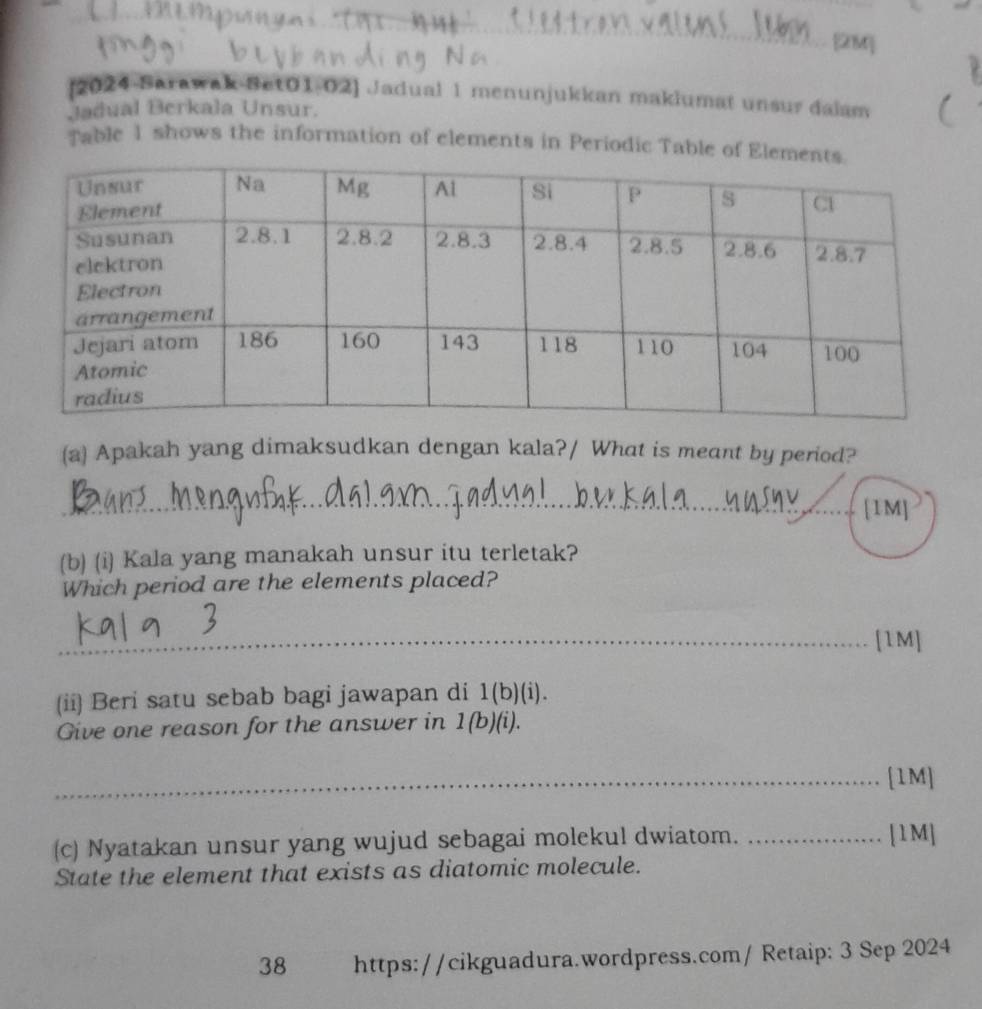 Cl mempunyai elektron valens lebih [2M]
tinggi berbanding Na
[2024-Sarawak-Set01-02] Jadual 1 menunjukkan maklumat unsur dalam
Jadual Berkala Unsur.
Table 1 shows the information of elements in Periodic Table of Elements.
Unsur Na Mg Al Si P S Cl
Element
Susunan 2.8.1 2.8.2 2.8.3 2.8.4 2.8.5 2.8.6 2.8.7
elektron
Electron
arrangement
Jejari atom 186 160 143 118 110 104 100
Atomic
radius
(a) Apakah yang dimaksudkan dengan kala?/ What is meant by period?
Baris mengufuk dalam jadual berkala unsur [1M]
(b) (i) Kala yang manakah unsur itu terletak?
Which period are the elements placed?
kala 3
[1M]
(ii) Beri satu sebab bagi jawapan di 1(b)(i).
Give one reason for the answer in 1(b)(i).
[1M]
(c) Nyatakan unsur yang wujud sebagai molekul dwiatom. [1M]
State the element that exists as diatomic molecule.
38 https://cikguadura.wordpress.com/ Retaip: 3 Sep 2024